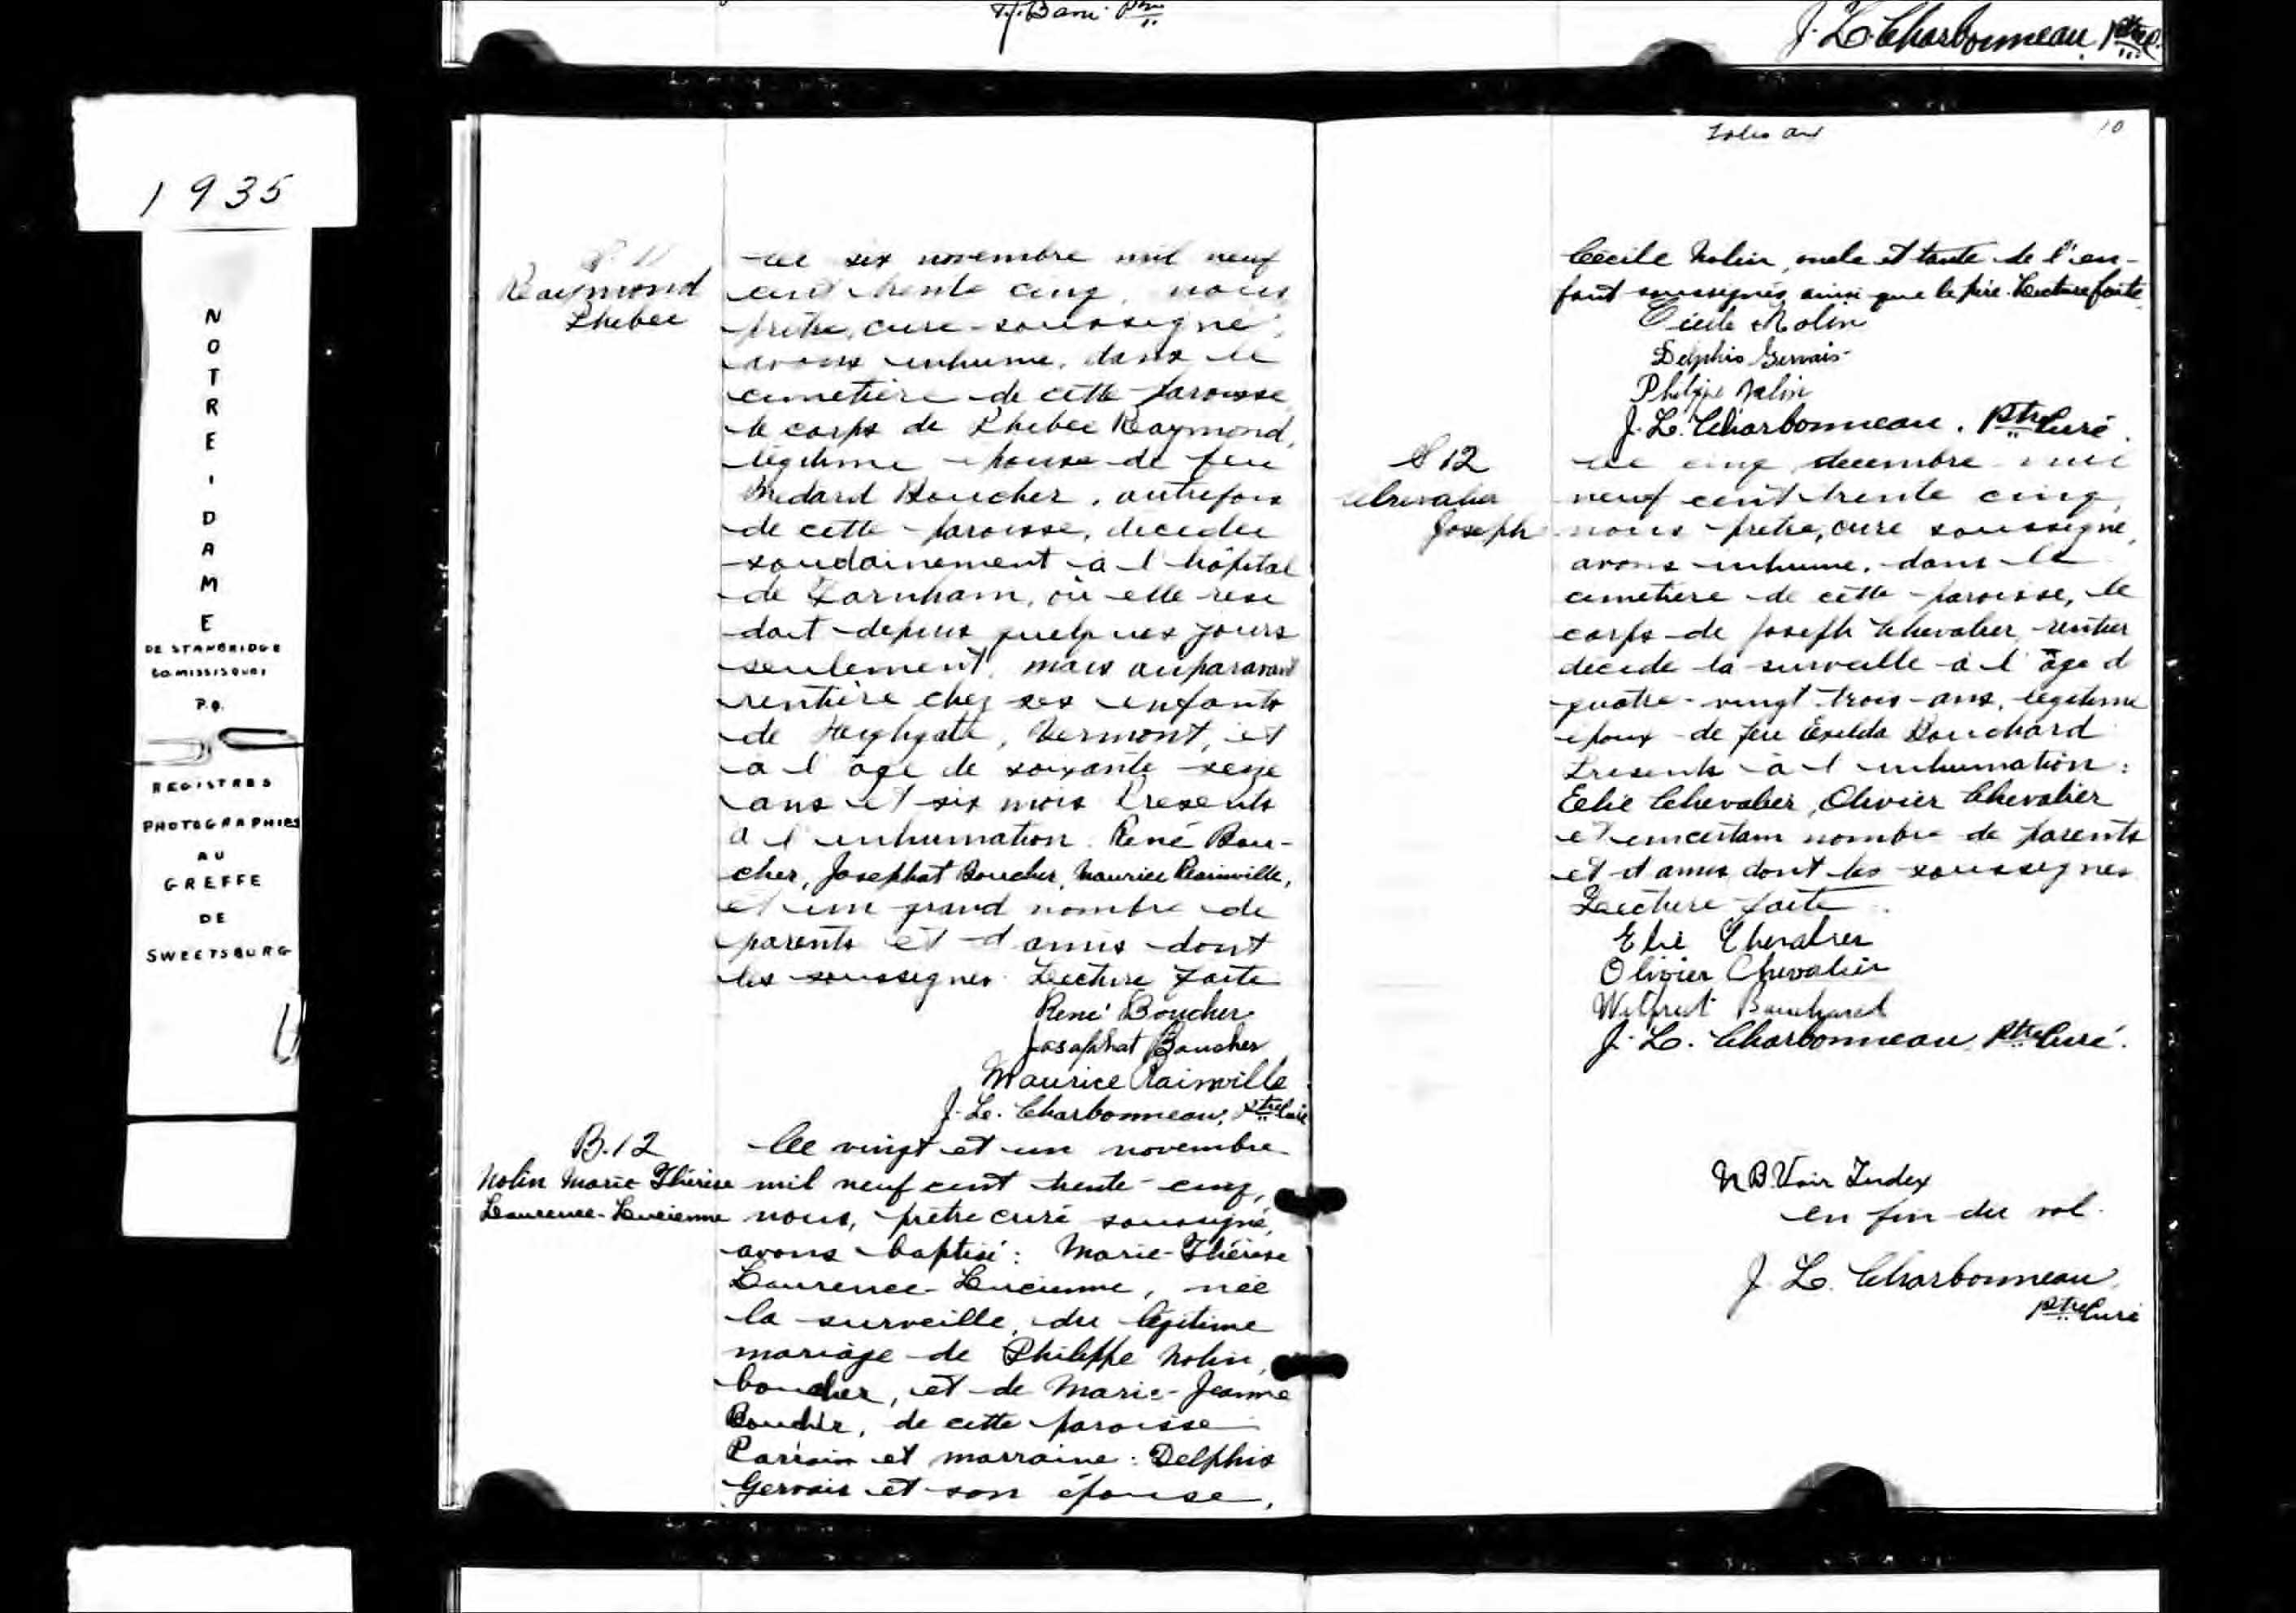 J. L. Charbonneau, Ptre
1935
NOTRE-DAME
DE STANBRIDGE
Co. MISSISQUOI
P.Q.
REGISTRES
PHOTOGRAPHIES
AU
GREFFE
DE
SWEETSBURG
S 11
Raymond
Phebee
Ce six novembre mil neuf
cent trente cinq, nous
prêtre, cure soussigné,
avons inhume, dans le
cimetière de cette paroisse
le corps de Phebee Raymond,
légitime epouse de feu
Medard Boucher, autrefois
de cette paroisse, decedee
soudainement à l'hôpital
de Farnham, où elle resi
dait depuis quelques jours
seulement, mais auparavant
rentière chez ses enfants
de Heyhgate, Vermont, et
à l'âge de soixante-seize
ans et six mois Presents
à l'inhumation. René Bou-
cher, Josephat Boucher, Maurice Rainville,
et un grand nombre de
parents et d'amis dont
les soussignes. Lecture faite
René Boucher
Josaphat Boucher
Maurice Rainville
J. L. Charbonneau, Ptre Curé
B. 12
Nolin Marie Thérèse
Laurence-Lucienne
Ce vingt et un novembre
mil neuf cent trente-cinq,
nous, prêtre curé soussigné,
avons baptisé: Marie-Thérèse
Laurence-Lucienne, née
la surveille, du légitime
mariage de Philippe Nolin,
boucher, et de Marie-Jeanne
Boucher, de cette paroisse
Parrain et marraine: Delphis
Gervais et son épouse,
10
Cécile Nolin, oncle et tante de l'en-
fant soussignés ainsi que le père. Lecture faite
Cécile Nolin
Delphis Gervais
Philippe Nolin
J. L. Charbonneau. Ptre Curé.
S 12
Chevalier
Joseph
Ce cinq decembre mil
neuf cent trente cinq,
nous prêtre, cure soussigne,
avons inhume, dans le
cimetiere de cette paroisse, le
corps de Joseph Chevalier, rentier
décédé la surveille à l'âge d
quatre-vingt-trois-ans, legitime
epoux de feu Exilda Bouchard
Presents à l'inhumation:
Eelie Chevalier, Olivier Chevalier
et un certain nombre de parents
et d'amis dont les soussignes
Lecture faite.
Elie Chevalier
Olivier Chevalier
Wilfrid Bouchard
J. L. Charbonneau, Ptre Curé.
N B. Voir Index
en fin du vol.
J. L. Charbonneau,
Ptre Curé